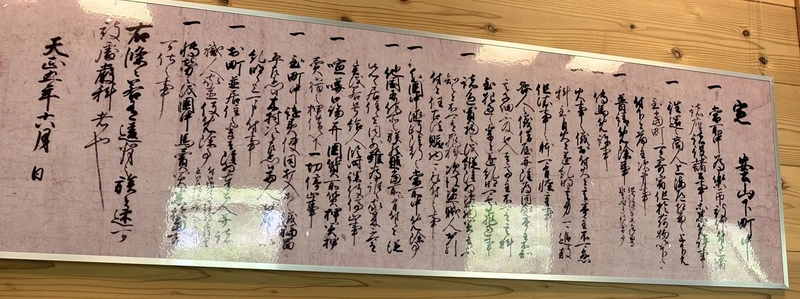 定 安土山下町中
一 当所中為楽市被仰付之上者
諸座諸役諸公事等悉免許事
一 往還之商人上海道相留之上下共
至当町可寄宿但於荷物以下之
付下者荷主次第事
一 普請免除事
伝馬免許事
火事之儀於付火者其亭主不可懸
科至自火者遂糺明其身可追放
但依事之躰可有軽重事
咎人之儀借屋并雖為同家亭主不知
其子細不及口入者亭主不可有其科
至犯過之輩者遂糺明可処罪過事
一 諸色買物之儀縦雖為盗物買主不
知之者不可有罪科次彼盗賊人於引
付者任古法贓物可返付之事
一 分国中徳政雖行之当所中免除事
一 他国并他所之族罷越当所仁有付候者従
先々居住之者同前雖為誰々家来不可有
異儀若号給人臨時課役停止事
一 喧嘩口論并国質所質押買押
売宿之押借以下一切停止事
一 至町中譴責使同打入等之儀福富
平左衛門尉木村次郎左衛門尉両人仁相届之以
糺明之上可申付事
一 於町並居住之輩者雖為奉公人并諸
職人家並役免除事
一 博労之儀国中馬売買悉於当所
可仕之事
右条々若有違背之族者速可
被処厳科者也
天正五年六月 日